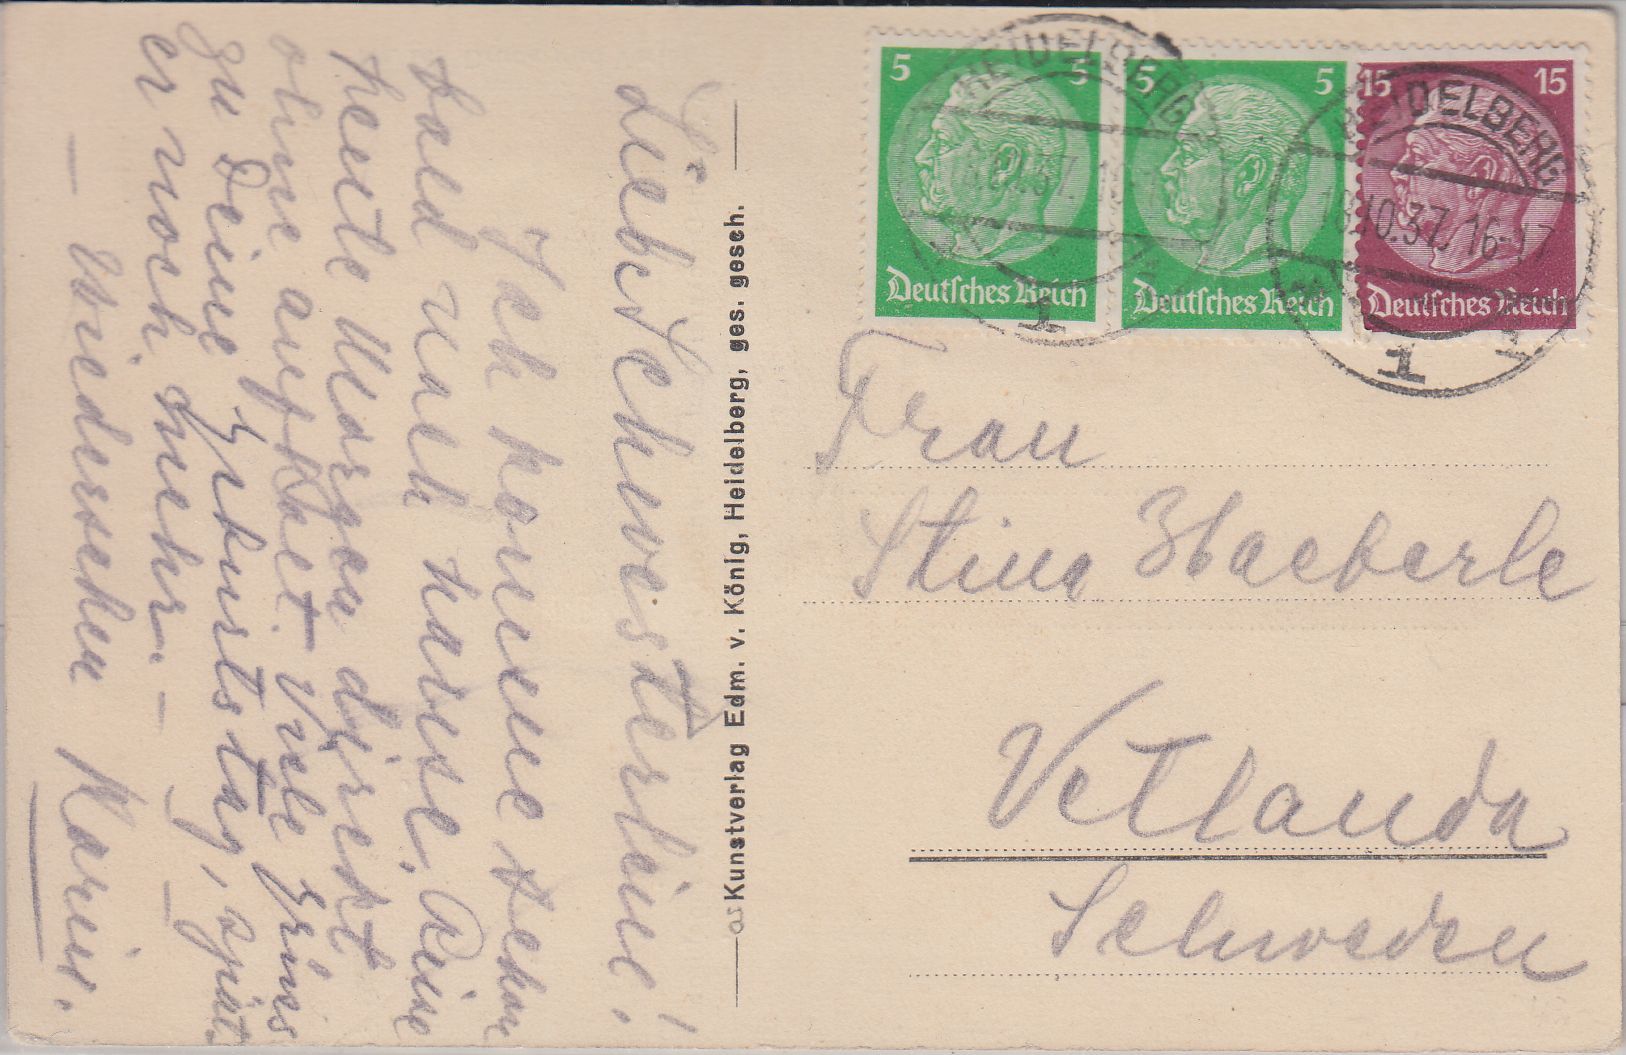 Liebe Schwesterline!
Ich komme schon
bald nach hause. Reise
heute Morgen direkt
ohne aufhbet. Viele Grüss
zu Deine Geburtstag, spät.
er noch mehr. –
– Wiedersehen Karin.
Kunstverlag Edm. v. König, Heidelberg, ges. gesch.
5 5 5 5 15 15
Deutsches Reich Deutsches Reich Deutsches Reich
HEIDELBERG
1
HEIDELBERG
18.10.37. 16-17
1
Frau
Stina Haeberle
Vetlanda
Schweden